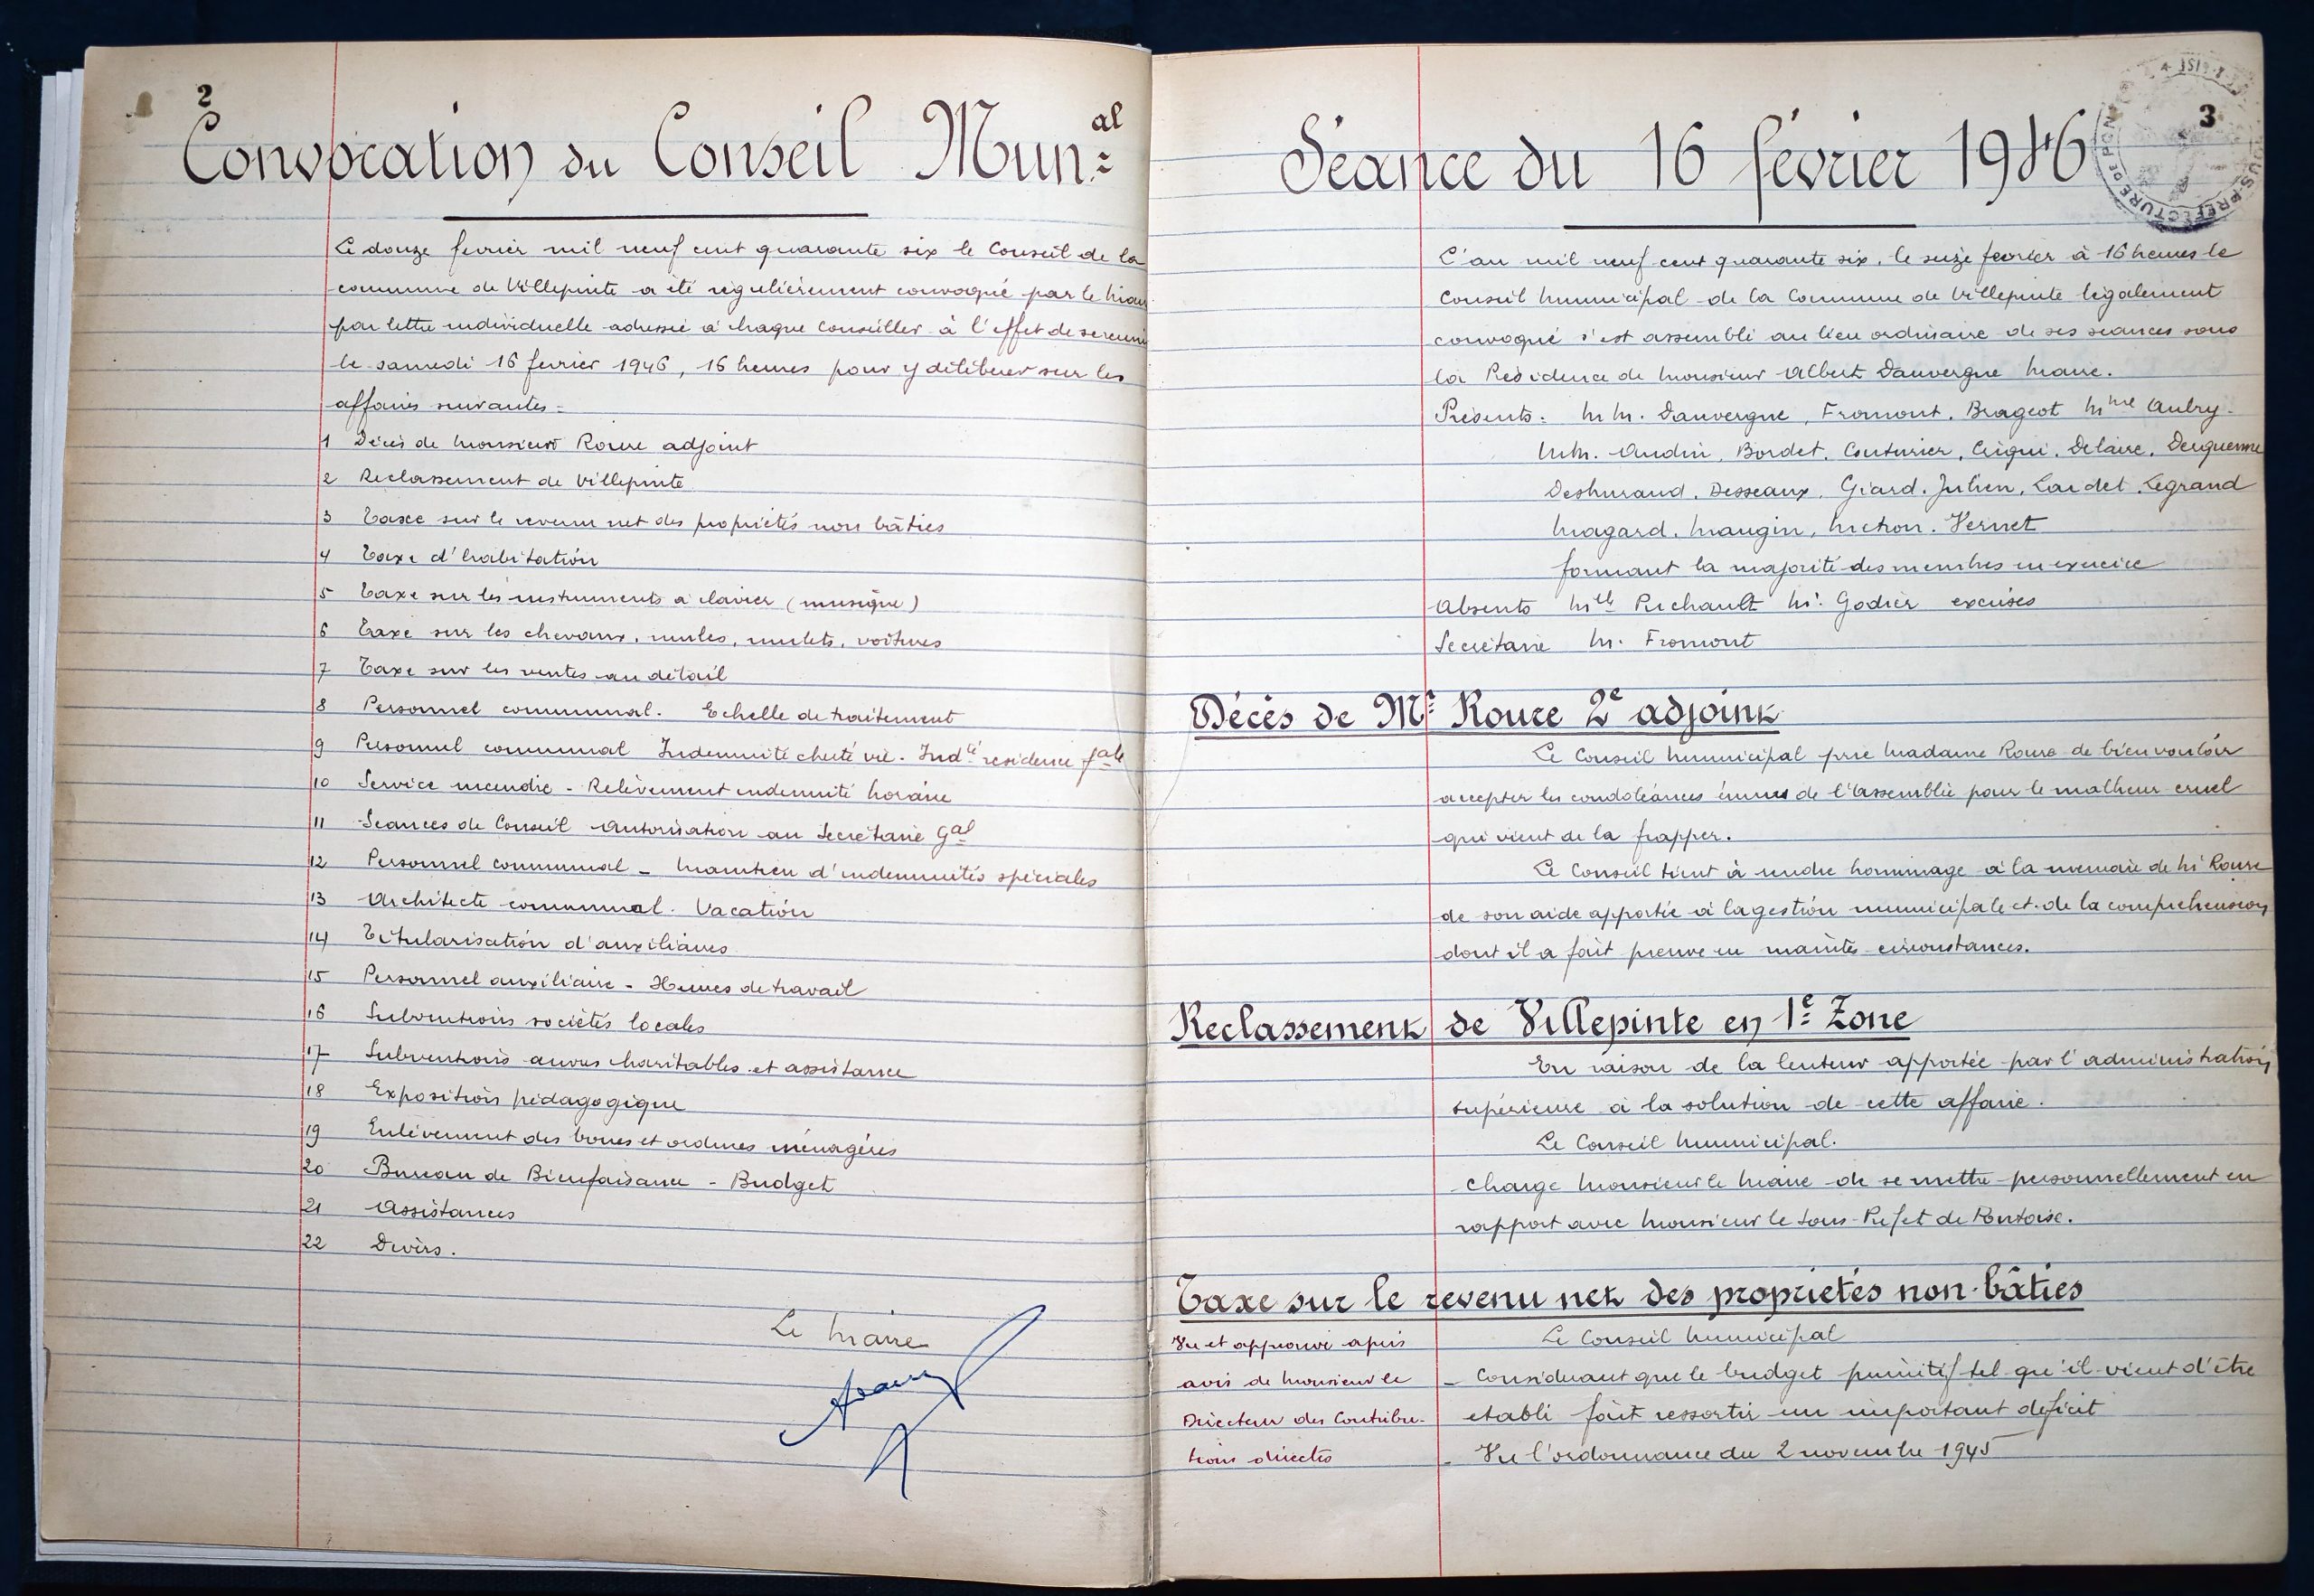 2
Convocation du Conseil Mun.al
Le douze fevrier mil neuf cent quarante six le Conseil de la
commune de Villepinte a été régulièrement convoqué par le Maire
par lettre individuelle adressée à chaque Conseiller à l'effet de se reunir
le samedi 16 fevrier 1946, 16 heures pour y délibérer sur les
affaires suivantes :
1 Décès de Monsieur Roure adjoint
2 Reclassement de Villepinte
3 Taxe sur le revenu net des propriétés non bâties
4 Taxe d'habitation
5 Taxe sur les instruments à clavier (musique)
6 Taxe sur les chevaux, mules, mulets, voitures
7 Taxe sur les ventes au détail
8 Personnel communal. Echelle de traitement
9 Personnel communal Indemnité cherté vie. Indté résidence fale
10 Service incendie - Relèvement indemnité horaire
11 Séances de Conseil Autorisation au Secrétaire Gal
12 Personnel communal - Maintien d'indemnités spéciales
13 Architecte communal. Vacation
14 Titularisation d'auxiliaires
15 Personnel auxiliaire - Heures de travail
16 Subventions sociétés locales
17 Subventions œuvres charitables et assistance
18 Exposition pédagogique
19 Enlèvement des boues et ordures ménagères
20 Bureau de Bienfaisance - Budget
21 Assistances
22 Divers.
Le Maire
3
SOUS-PREFECTURE DE PONTOISE
Séance du 16 février 1946
L'an mil neuf cent quarante six, le seize fevrier à 16 heures le
Conseil Municipal de la Commune de Villepinte légalement
convoqué s'est assemblé au lieu ordinaire de ses séances sous
la Présidence de Monsieur Albert Dauvergne Maire.
Présents : MM. Dauvergne, Fromont, Brageot Mme Aubry.
MM. Audin, Bordet, Couturier, Criqui, Delaire, Derguenne
Deshuraud, Desseaux, Giard, Julien, Lardet, Legrand
Magard, Maugin, Michon. Vernet
formant la majorité des membres en exercice
Absents Mlle Puchault Mr. Godier excusés
Secrétaire M. Fromont
Décès de Mr Roure 2e adjoint
Le Conseil Municipal prie Madame Roure de bien vouloir
accepter les condoléances émues de l'Assemblée pour le malheur cruel
qui vient de la frapper.
Le Conseil tient à rendre hommage à la mémoire de Mr Roure
de son aide apportée à la gestion municipale et de la compréhension
dont il a fait preuve en maintes circonstances.
Reclassement de Villepinte en 1e Zone
En raison de la lenteur apportée par l'administration
supérieure à la solution de cette affaire.
Le Conseil Municipal.
Charge Monsieur le Maire de se mettre personnellement en
rapport avec Monsieur le Sous-Préfet de Pontoise.
Taxe sur le revenu net des propriétés non-bâties
Vu et approuvé après
avis de Monsieur le
Directeur des Contribu-
tions directes
Le Conseil Municipal
- Considérant que le budget primitif tel qu'il vient d'être
établi fait ressortir un important déficit
- Vu l'ordonnance du 2 novembre 1945